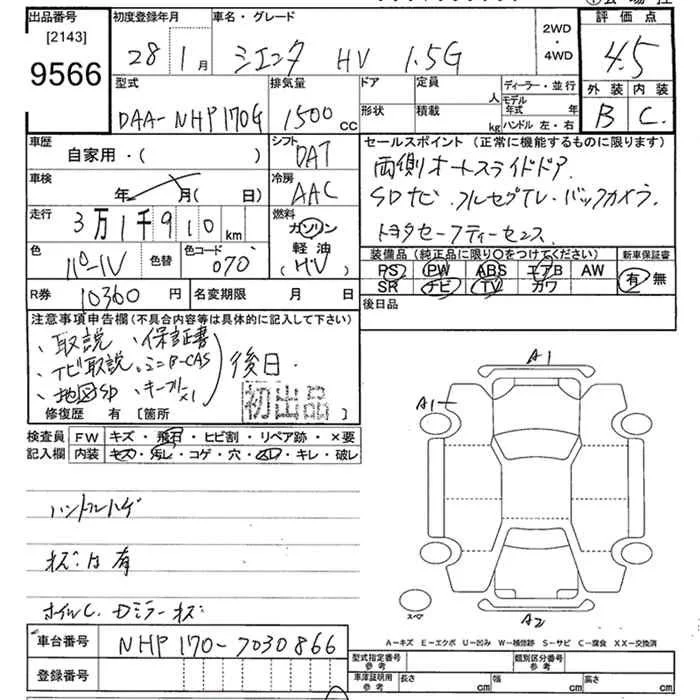 出品番号 初度登録年月 車名・グレード 2WD・4WD 評価点
[2143]
9566
28年1月 シエンタ HV 1.5G 4.5
型式 排気量 ドア 定員 人 ディーラー・並行 外装 内装
DAA-NHP170G 1500cc 形状 積載 kg モデル年式 年 B C
ハンドル 左・右
車歴 シフト セールスポイント (正常に機能するものに限ります)
自家用・( ) DAT 両側オートスライドドア
車検 冷房 SDナビ フルセグTV バックカメラ
年 月( 日) AAC
走行 燃料 トヨタセーフティーセンス
3万1千910km ガソリン
軽油
(HV)
色 色替 色コード 装備品 (純正品に限り○をつけてください) 新車保証書
070 PS PW ABS エアB AW 有・無
SR ナビ TV カワ
R券 10360円 名変期限 月 日 後日品
注意事項申告欄(不具合内容等は具体的に記入して下さい)
、取説 、保証書
、ナビ取説 、ミニB-CAS 後日
、地図SD 、キーフリー×1
初出品
修復歴 有 [箇所 ]
検査員 FW キズ・飛石・ヒビ割・リペア跡・×要
記入欄 内装 キズ・汚レ・コゲ・穴・スレ・キレ・破レ
A1
A1
ハンドルハゲ
有
ホイルC、Dミラーキズ
スペア
A2
A−キズ E−エクボ U−凹み W−補修跡 S−サビ C−腐食 XX−交換済
車台番号 NHP170-7030866
型式指定番号 参考 類別区分番号 参考
登録番号 車庫証明用 参考 長さ cm 幅 cm 高さ cm